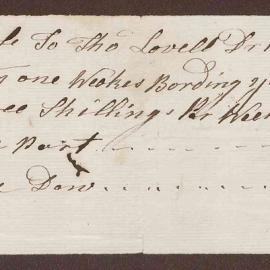 To Tho Lovell Dr
one Weekes Bording
Shillings Pr Week
Part
Dow